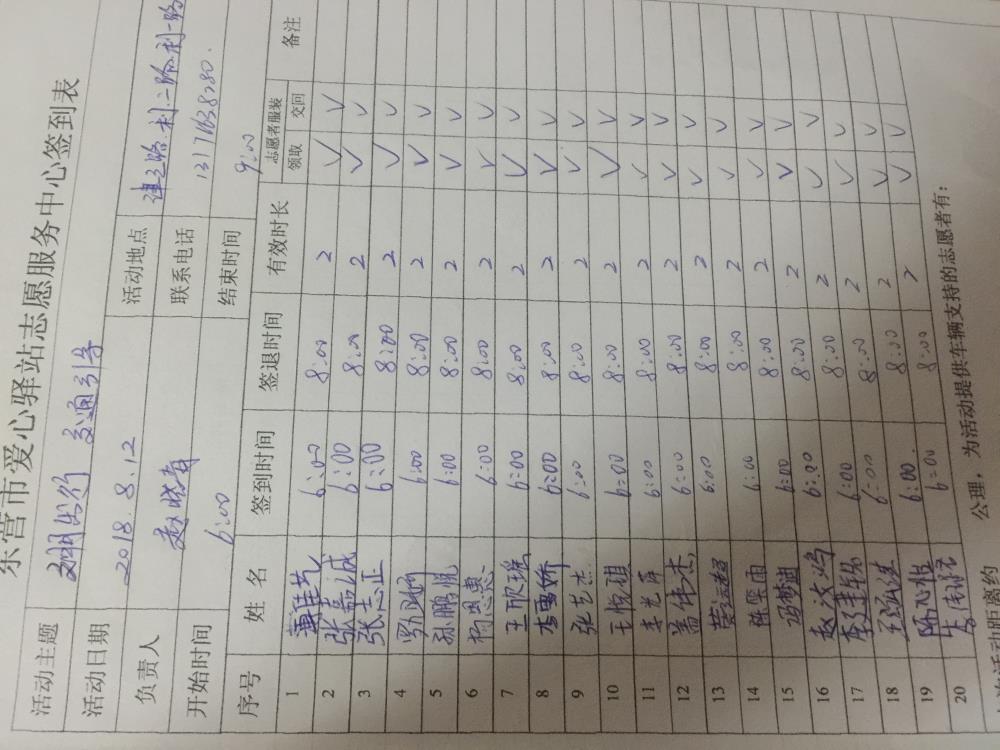 东营市爱心驿站志愿服务中心签到表
活动主题 文明出行 交通引导
活动日期 2018.8.12 活动地点
负责人 赵晓 联系电话
开始时间 6:00 结束时间 9:00
序号 姓名 签到时间 签退时间 有效时长 志愿者服装 备注
领取 交回
1 6:00 8:00 2 V V
2 张嘉诚 6:00 8:00 2 V V
3 张志正 6:00 8:00 2 V V
4 6:00 8:00 2 V V
5 孙鹏 6:00 8:00 2 V V
6 6:00 8:00 2 V V
7 王欣瑶 6:00 8:00 2 V V
8 6:00 8:00 2 V V
9 张艺杰 6:00 8:00 2 V V
10 王悦琪 6:00 8:00 2 V V
11 李光 6:00 8:00 2 V V
12 盖伟杰 6:00 8:00 2 V V
13 6:00 8:00 2 V V
14 雨 6:00 8:00 2 V V
15 冯梦迪 6:00 8:00 2 V V
16 赵汝鸿 6:00 8:00 2 V V
17 李建 6:00 8:00 2 V V
18 6:00 8:00 2 V V
19 陈 6:00 8:00 2 V V
20 6:00 8:00 2 V V
活动距离约 公理，为活动提供车辆支持的志愿者有：